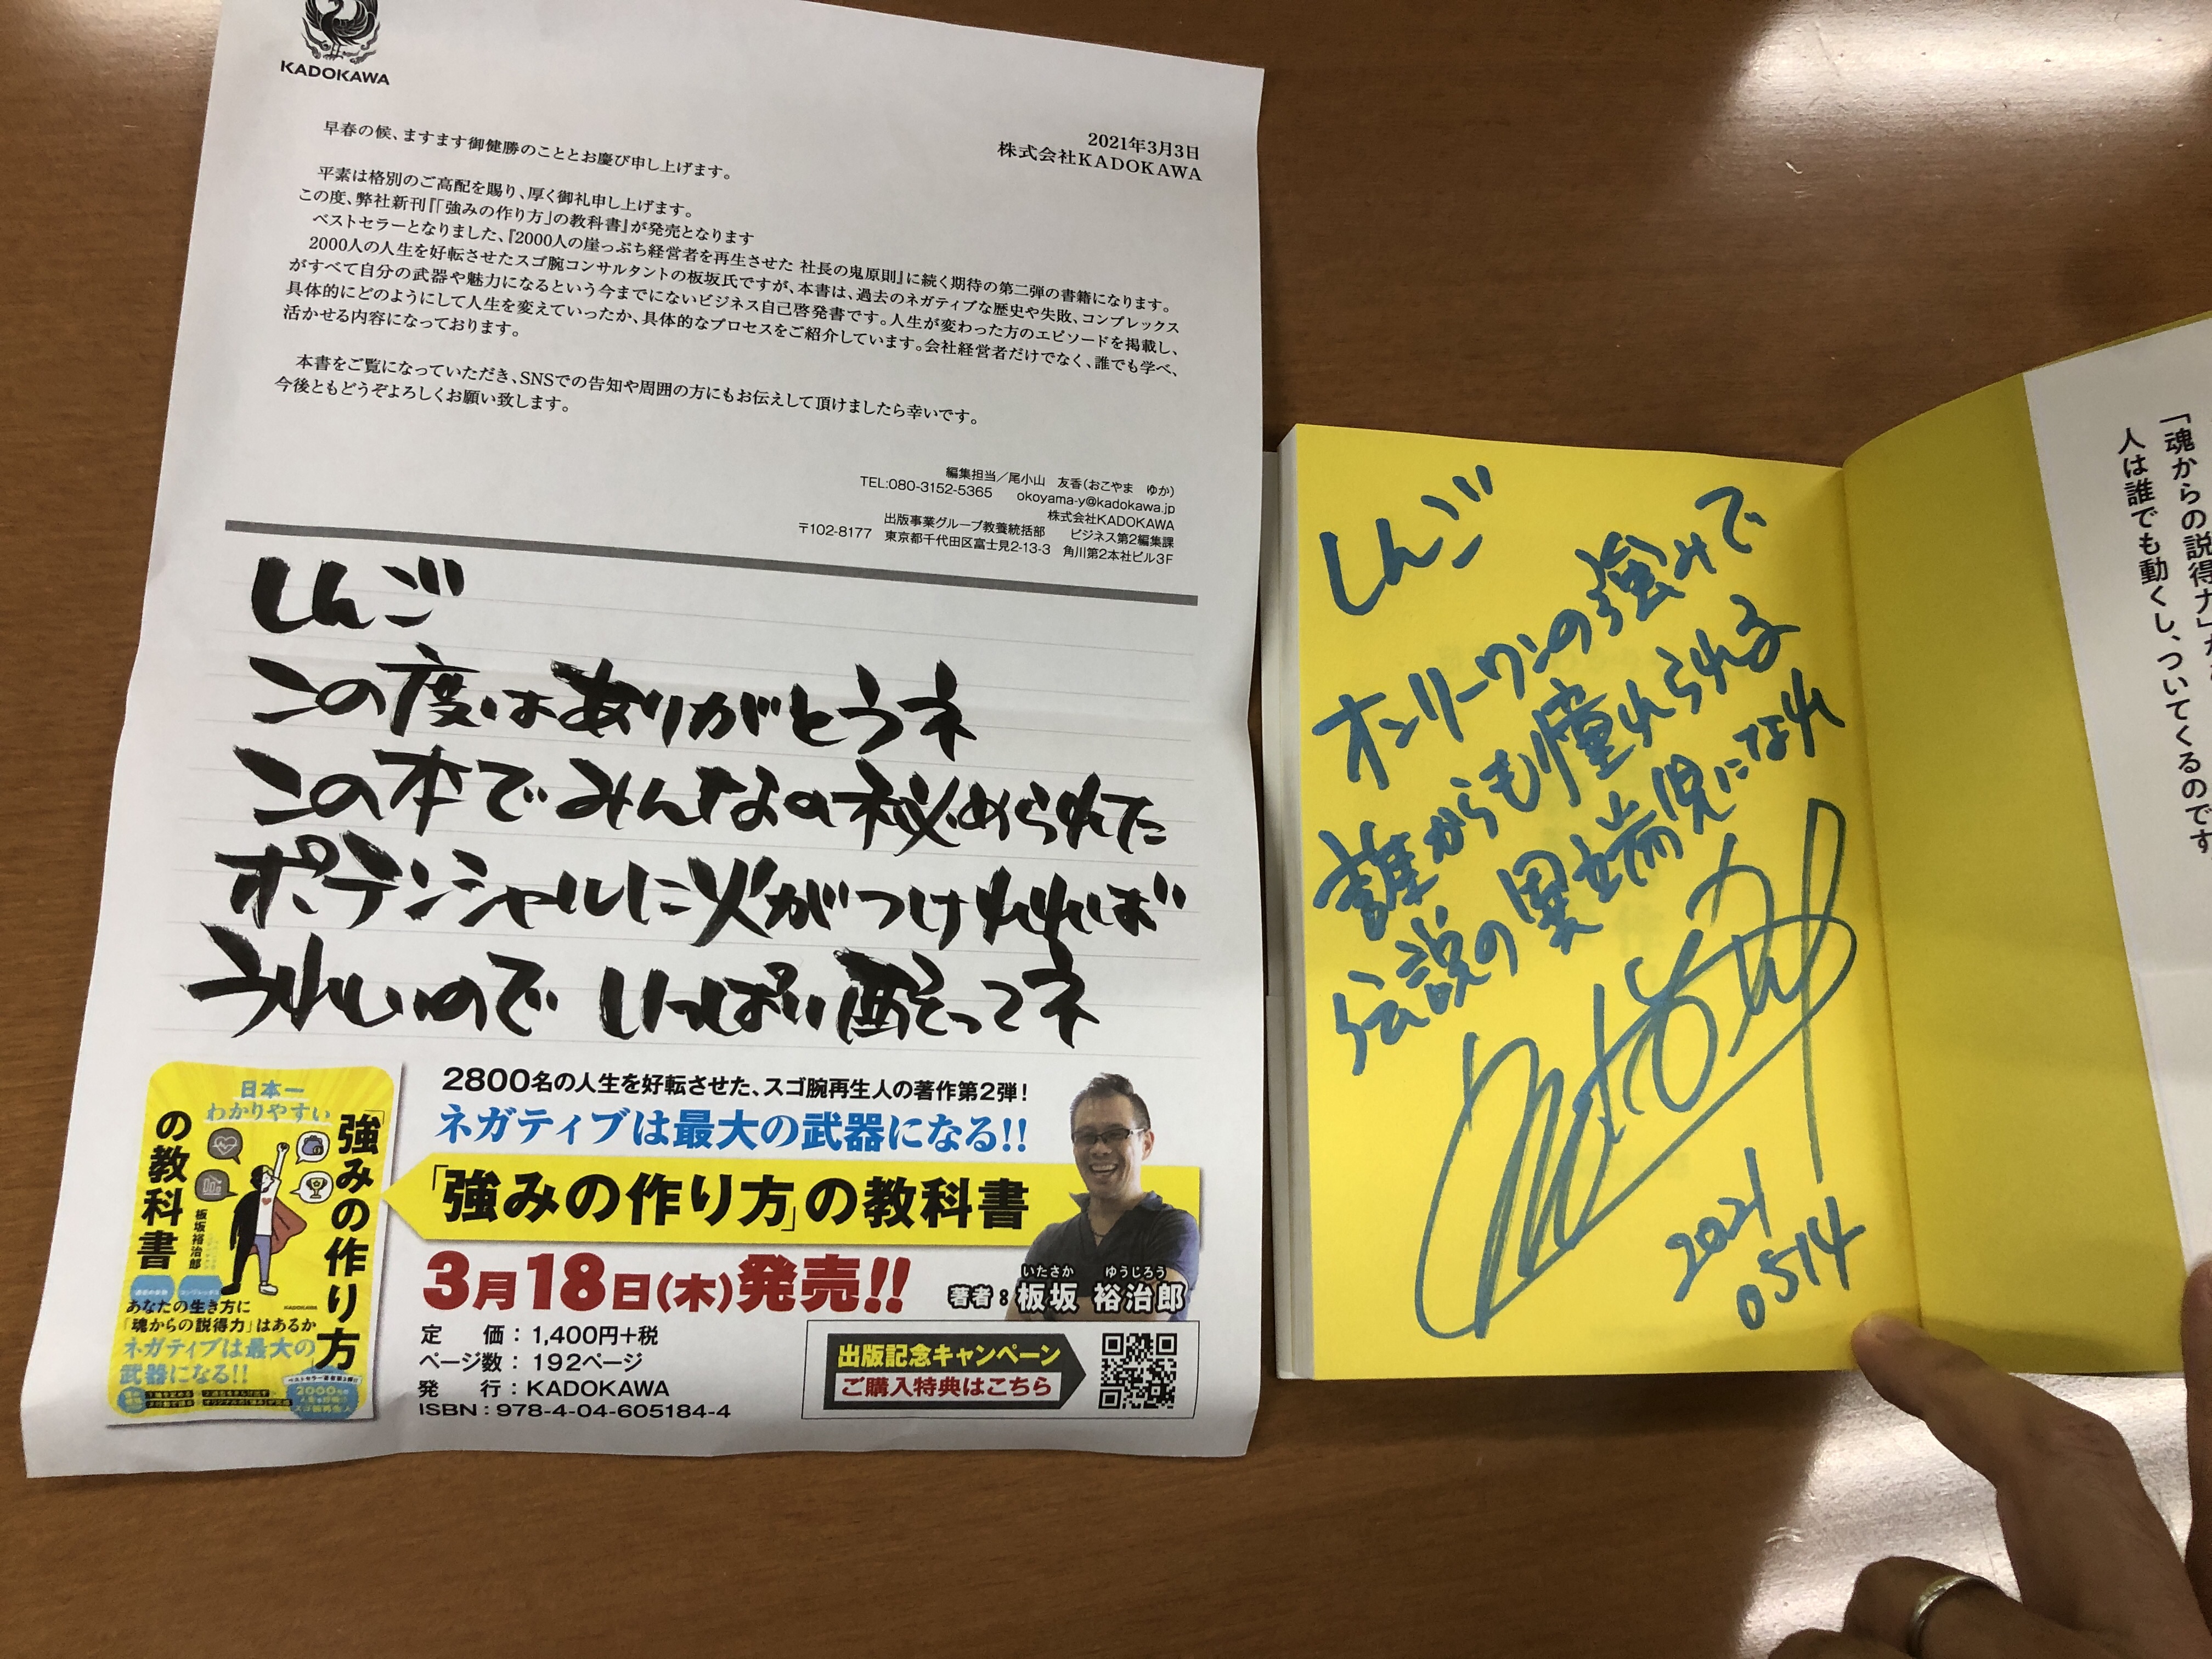 KADOKAWA
2021年3月3日
株式会社KADOKAWA
早春の候、ますます御健勝のこととお慶び申し上げます。
平素は格別のご高配を賜り、厚く御礼申し上げます。
この度、弊社新刊『「強みの作り方」の教科書』が発売となります
ベストセラーとなりました、『2000人の崖っぷち経営者を再生させた 社長の鬼原則』に続く期待の第二弾の書籍になります。
2000人の人生を好転させたスゴ腕コンサルタントの板坂氏ですが、本書は、過去のネガティブな歴史や失敗、コンプレックス
がすべて自分の武器や魅力になるという今までにないビジネス自己啓発書です。人生が変わった方のエピソードを掲載し、
具体的にどのようにして人生を変えていったか、具体的なプロセスをご紹介しています。会社経営者だけでなく、誰でも学べ、
活かせる内容になっております。
本書をご覧になっていただき、SNSでの告知や周囲の方にもお伝えして頂けましたら幸いです。
今後ともどうぞよろしくお願い致します。
編集担当／尾小山 友香(おこやま ゆか)
TEL:080-3152-5365 okoyama-y@kadokawa.jp
株式会社KADOKAWA
出版事業グループ教養統括部 ビジネス第2編集課
〒102-8177 東京都千代田区富士見2-13-3 角川第2本社ビル3F
しんご
この度はありがとうネ
この本でみんなの秘められた
ポテンシャルに火がつけれれば
うれしいので いっぱい配ってネ
日本一
わかりやすい
「強みの作り方」
の教科書
板坂裕治郎
KADOKAWA
あなたの生き方に
「魂からの説得力」はあるか
ネガティブは最大の
武器になる!!
2800名の人生を好転させた、スゴ腕再生人の著作第2弾!
ネガティブは最大の武器になる!!
「強みの作り方」の教科書
3月18日(木)発売!!
いたさか ゆうじろう
著者：板坂 裕治郎
定 価：1,400円+税
ページ数：192ページ
発 行：KADOKAWA
ISBN：978-4-04-605184-4
出版記念キャンペーン
ご購入特典はこちら
しんご
オンリーワンの強みで
誰からも憧れられる
伝説の異端児になれ
2021
0514
「魂からの説得力」が
人は誰でも動くし、ついてくるのです